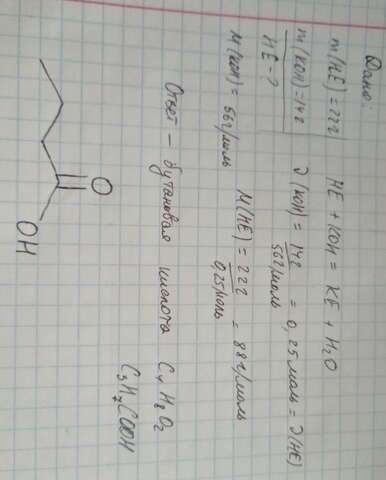 Дано:
m(HE)=22г
m(KOH)=14г
HE-?
HE + KOH = KE + H₂O
ν(KOH) = 14г / 56г/моль = 0,25моль = ν(HE)
M(KOH) = 56г/моль
M(HE) = 22г / 0,25моль = 88г/моль
Ответ – бутановая кислота C₄H₈O₂
C₃H₇COOH
O
OH